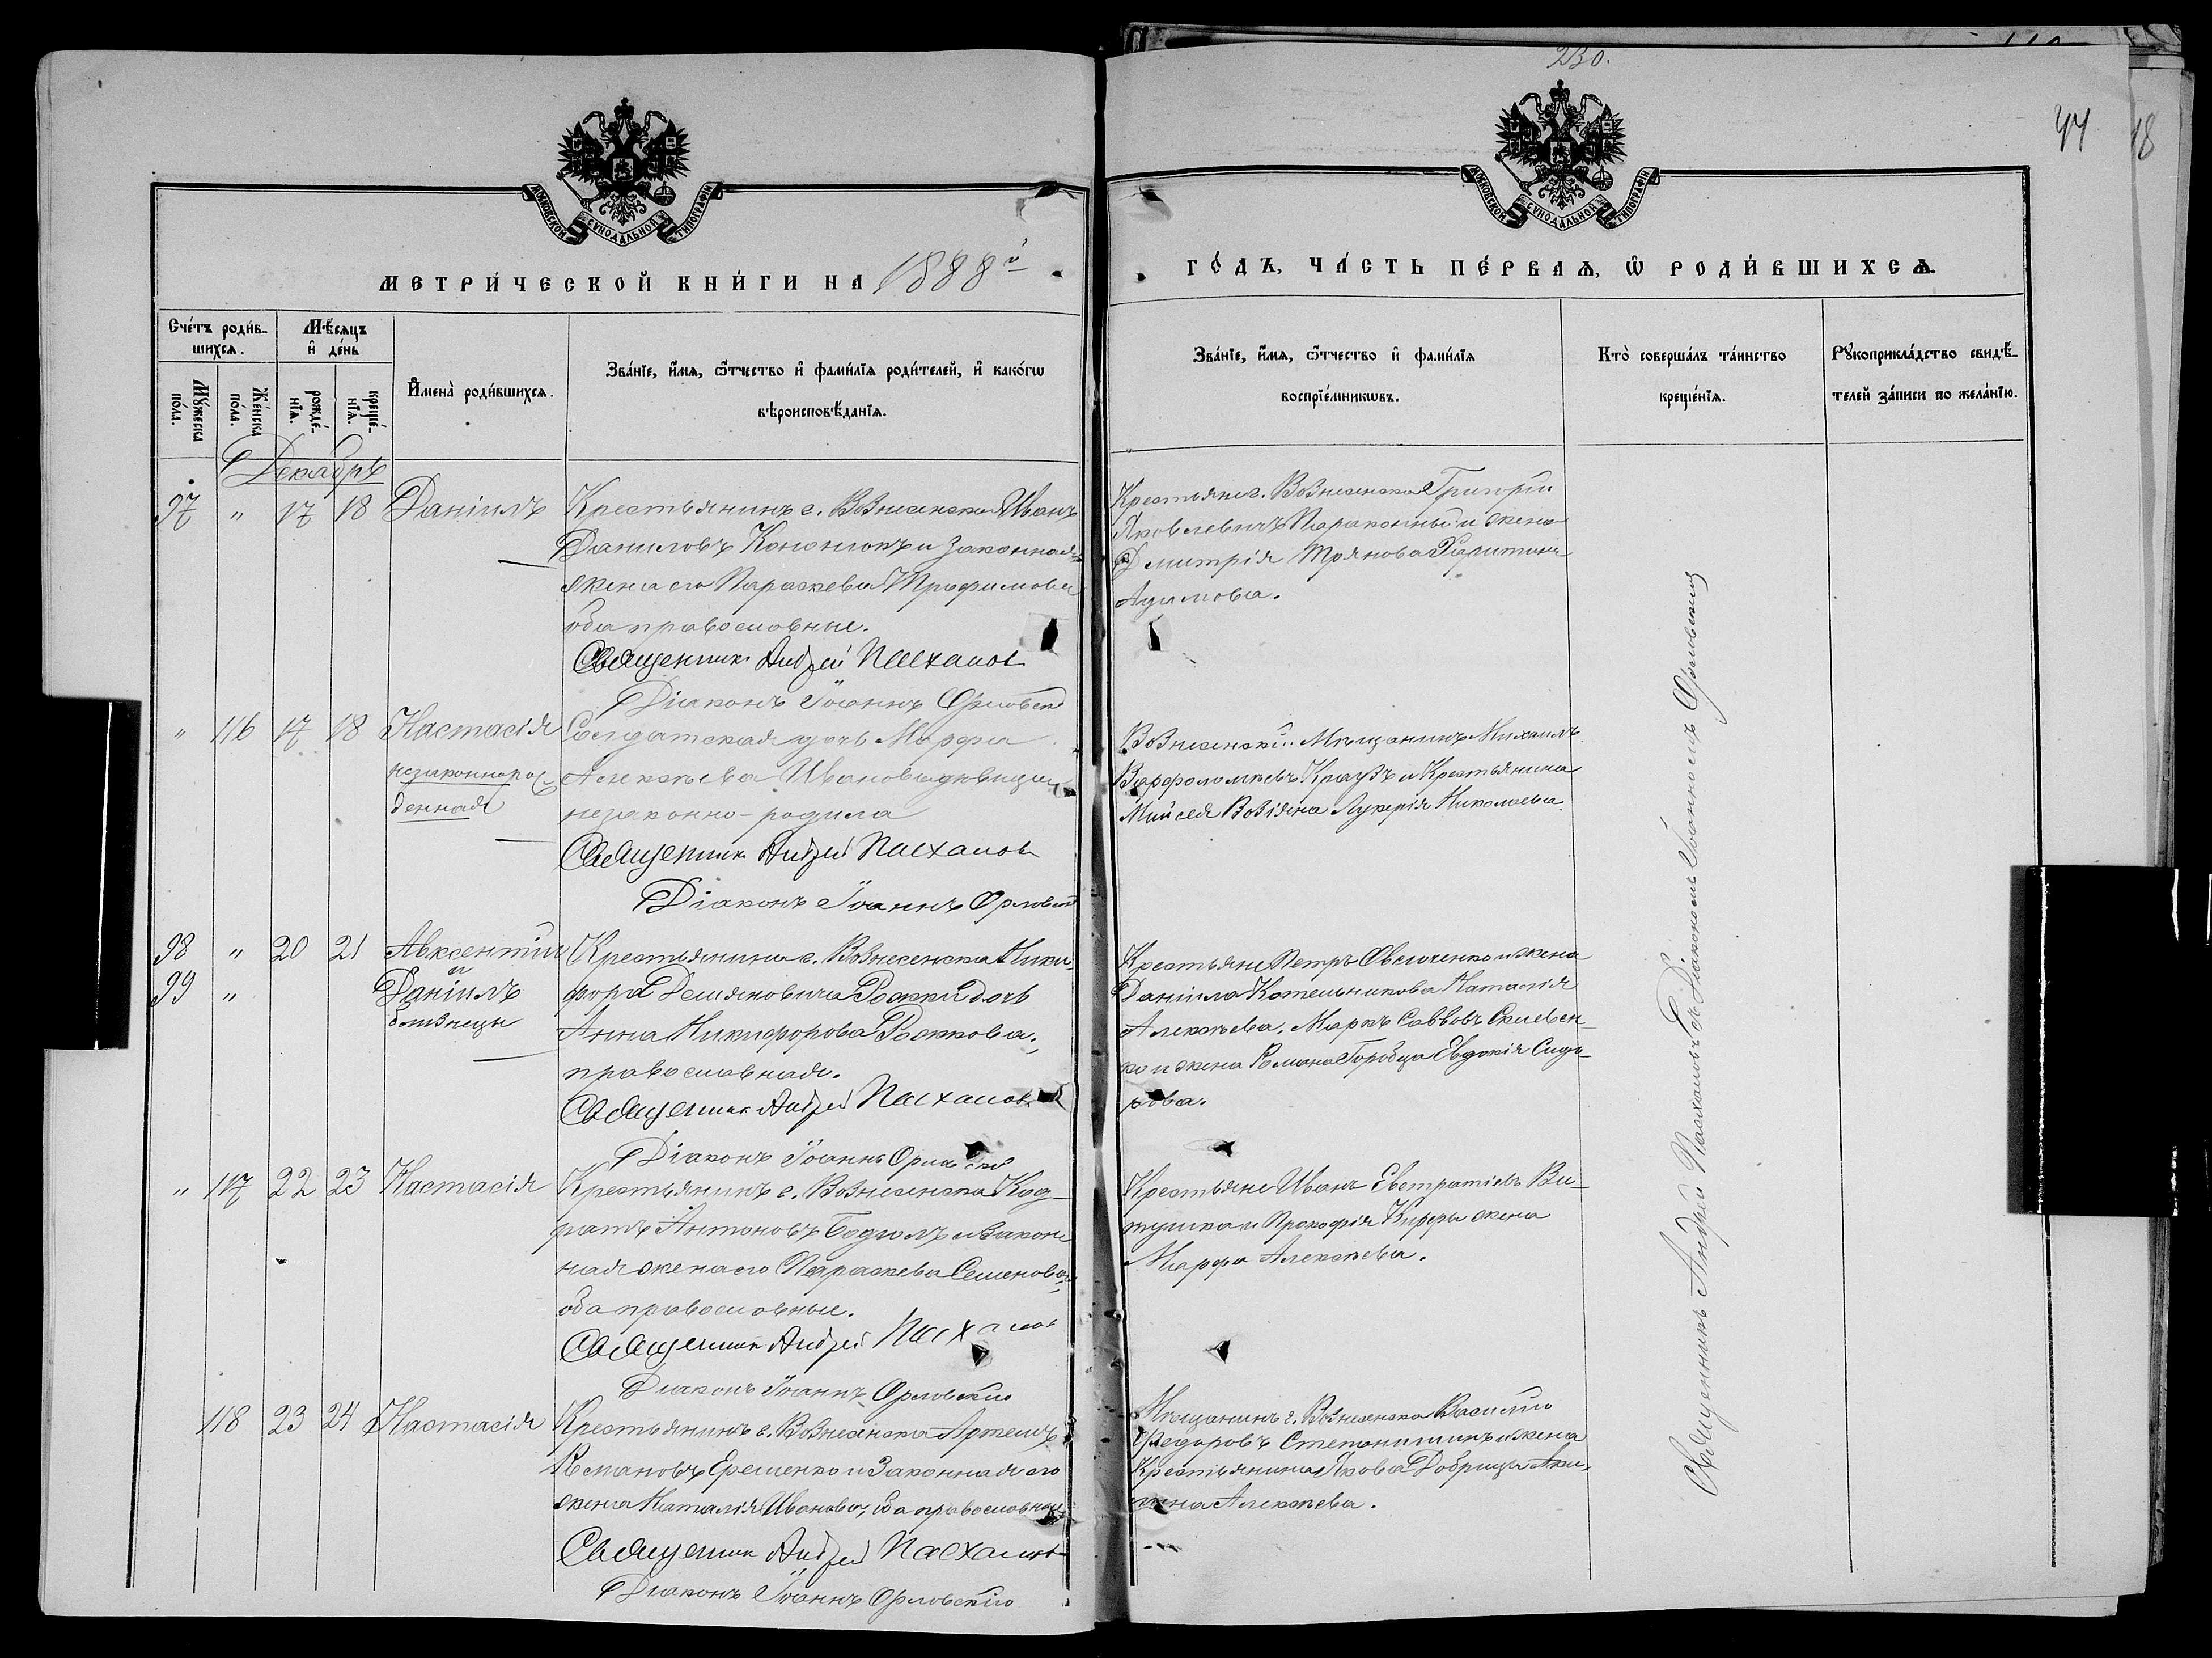 230.
44
18
МОСКОВСКОЙ СѴНОДАЛЬНОЙ ТИПОГРАФІИ
МОСКОВСКОЙ СѴНОДАЛЬНОЙ ТИПОГРАФІИ
МЕТРИ́ЧЕСКОЙ КНИ́ГИ НА 1888й
ГО́ДЪ, ЧА́СТЬ ПЕ́РВАѦ, Ѡ҆ РОДИ́ВШИХСѦ.
Сче́тъ роди́в-
шихсѧ.
Мꙋ́жеска по́ла.
Же́нска по́ла.
Мѣ́сѧцъ
и҆ де́нь
рожде́-нїѧ.
креще́-нїѧ.
И҆мена̀ роди́вшихсѧ.
Зва́нїе, и҆́мѧ, ѻ҆́тчество и҆ фами́лїѧ роди́телей, и҆ како́гѡ
вѣроисповѣ́данїѧ.
Зва́нїе, и҆́мѧ, ѻ҆́тчество и҆ фами́лїѧ
воспрїе́мникѡвъ.
Кто̀ соверша́лъ та́инство
креще́нїѧ.
Рꙋкоприкла́дство свидѣ́-
телей за́писи по жела́нїю.
Декабрь
97 " 17 18 Даніилъ
Крестьянинъ г. Вознесенска Иванъ
Даниловъ Кононюкъ и законная
жена его Параскева Трофимова
оба православные.
Священникъ Андрей Пасхаловъ
Діаконъ Іоаннъ Орловскій
Крестьяне г. Вознесенска Григорій
Яковлевичъ и жена
Дмитрія Троянова
" 116 17 18 Настасія
незаконнорож
денная
Солдатская дочь Марфа
Алексѣева Иванова девица
незаконно-родила
Священникъ Андрей Пасхаловъ
Діаконъ Іоаннъ Орловскій
Вознесенскій Мѣщанинъ Михаилъ
Варфоломѣевъ Краузъ и Крестьянина
Мойсея Возіяна Лукерія Николаева.
98 " 20 21 Авксентій
99 " и
Даніилъ
близнецы
Крестьянина г. Вознесенска Ники-
фора Демяновича дочь
Анна Никифорова
православная.
Священникъ Андрей Пасхаловъ
Діаконъ Іоаннъ Орловскій
Крестьяне Петръ и жена
Даніила Котельникова Наталія
Алексѣева. Маркъ Саввовъ
ко и жена Романа Горобца Евдокія Сидо-
рова.
" 117 22 23 Настасія
Крестьянинъ г. Вознесенска Код-
ратъ Антоновъ и закон
ная жена его Параскева Семенова,
оба православные.
Священникъ Андрей Пасхаловъ
Діаконъ Іоаннъ Орловскій
Крестьяне Иванъ Евстратіевъ Ви-
тушка и Прокофія жена
Марфа Алексѣева.
118 23 24 Настасія
Крестьянинъ г. Вознесенска Артемъ
Романовъ Еременко и Законная его
жена Наталія Иванова, оба православные
Священникъ Андрей Пасхаловъ
Діаконъ Іоаннъ Орловскій
Мѣщанинъ г. Вознесенска Василій
Федоровъ и жена
Крестьянина Якова Добрицы Аки-
лина Алексѣева.
Священникъ Андрей Пасхаловъ съ Діакономъ Іоанномъ Орловскимъ